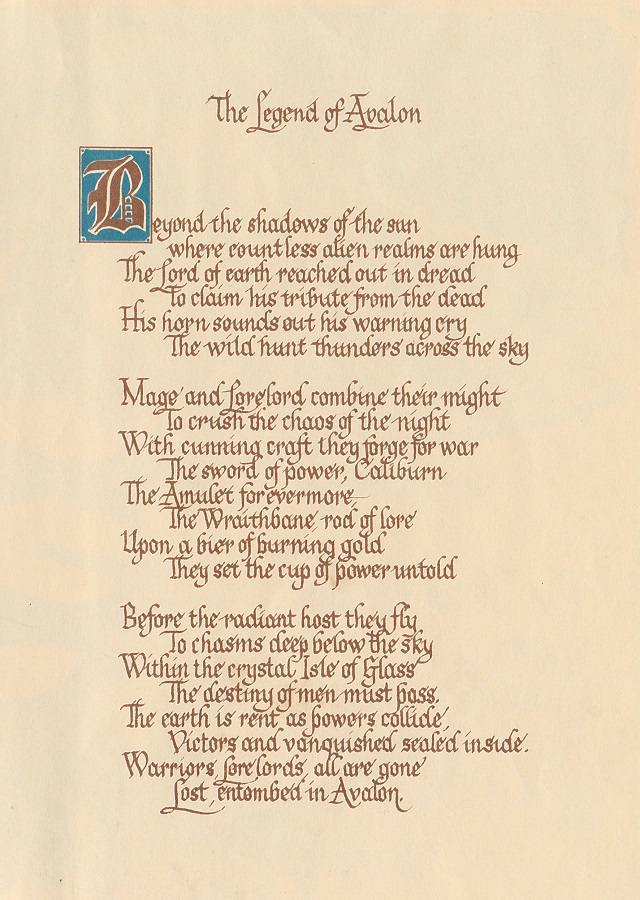 The Legend of Avalon
Beyond the shadows of the sun
where countless alien realms are hung
The Lord of earth reached out in dread
To claim his tribute from the dead
His horn sounds out his warning cry
The wild hunt thunders across the sky
Mage and Lorelord combine their might
To crush the chaos of the night
With cunning craft they forge for war
The sword of power, Caliburn
The Amulet forevermore
The Wraithbane rod of lore
Upon a bier of burning gold
They set the cup of power untold
Before the radiant host they fly
To chasms deep below the sky
Within the crystal Isle of Glass
The destiny of men must pass.
The earth is rent as powers collide,
Victors and vanquished sealed inside.
Warriors, Lorelords, all are gone
Lost, entombed in Avalon.